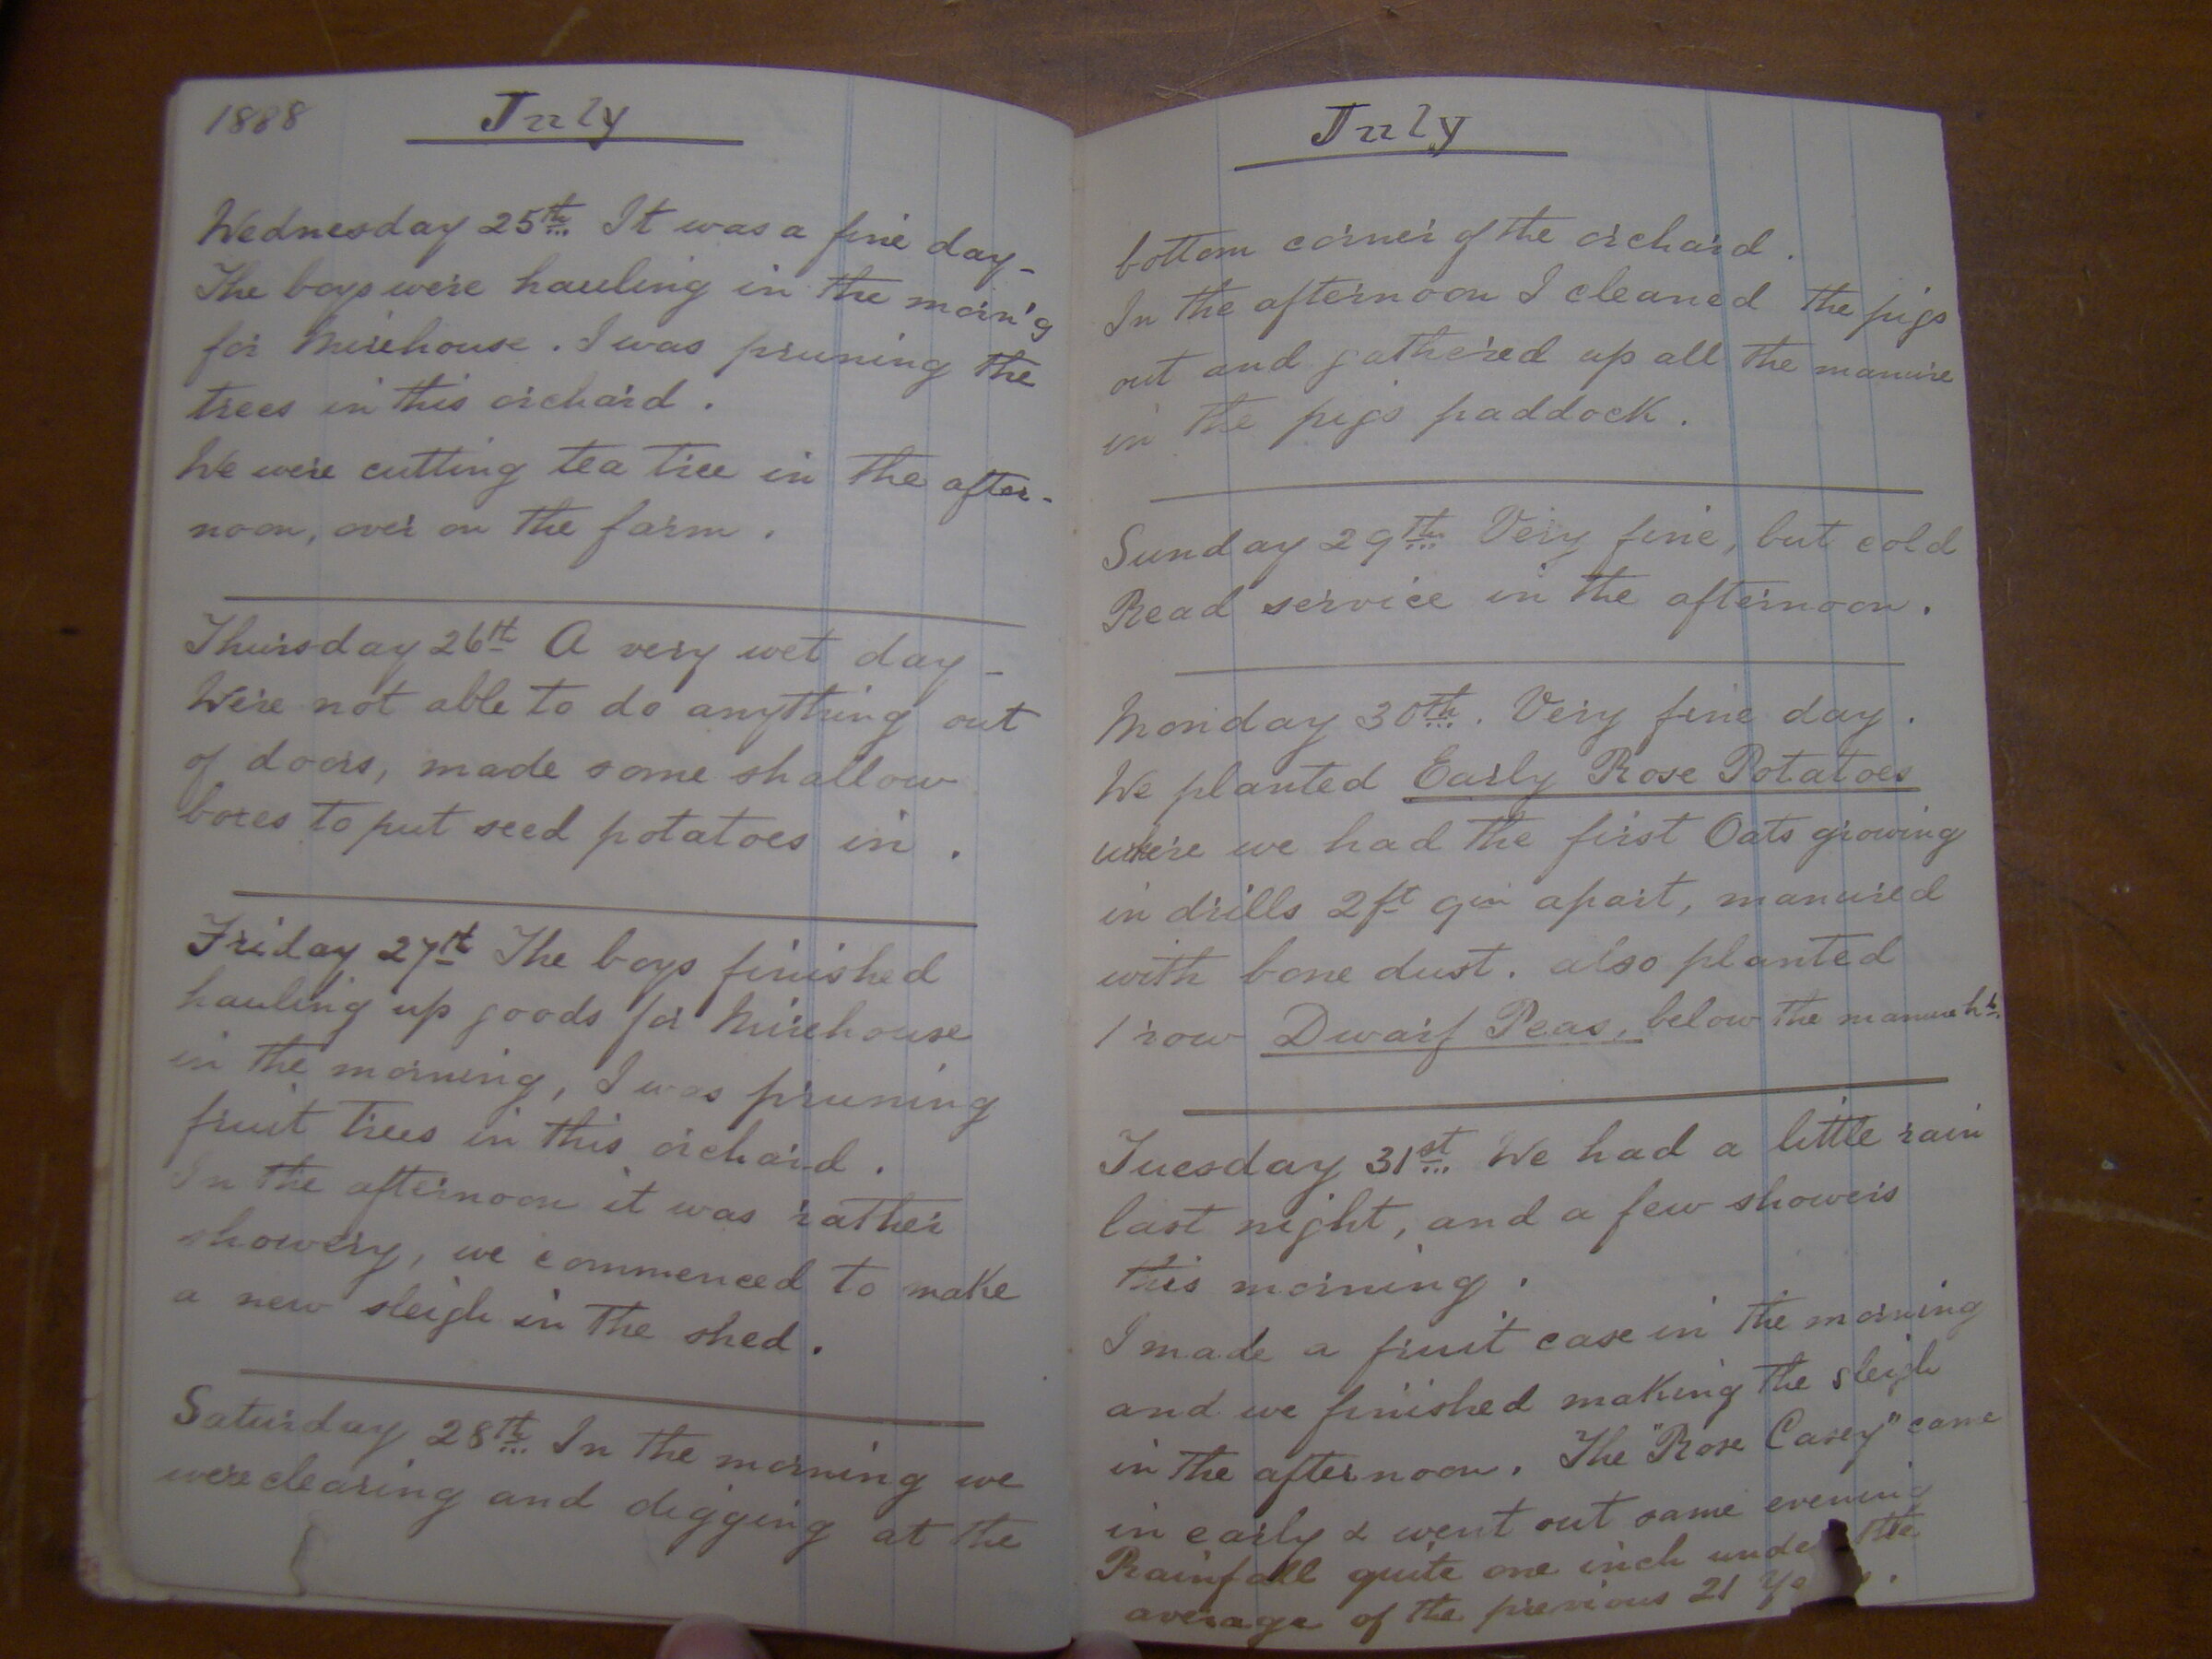 1888
July
Wednesday 25th It was a fine day -
The boys were hauling in the morn'g
for Mirehouse. I was pruning the
trees in this orchard.
We were cutting tea tree in the after-
noon, over on the farm.
Thursday 26th A very wet day -
Were not able to do anything out
of doors, made some shallow
boxes to put seed potatoes in.
Friday 27th The boys finished
hauling up goods for Mirehouse
in the morning, I was pruning
fruit trees in this orchard.
In the afternoon it was rather
showery, we commenced to make
a new sleigh in the shed.
Saturday 28th In the morning we
were clearing and digging at the
July
bottom corner of the orchard.
In the afternoon I cleaned the pigs
out and gathered up all the manure
in the pigs paddock.
Sunday 29th Very fine, but cold
Read service in the afternoon.
Monday 30th. Very fine day.
We planted Early Rose Potatoes
where we had the first Oats growing
in drills 2ft 9in apart, manured
with bone dust. also planted
1 row Dwarf Peas, below the manure
Tuesday 31st We had a little rain
last night, and a few showers
this morning.
I made a fruit case in the morning
and we finished making the sleigh
in the afternoon. The "Rose Casey" came
in early & went out same evening
Rainfall quite one inch under the
average of the previous 21